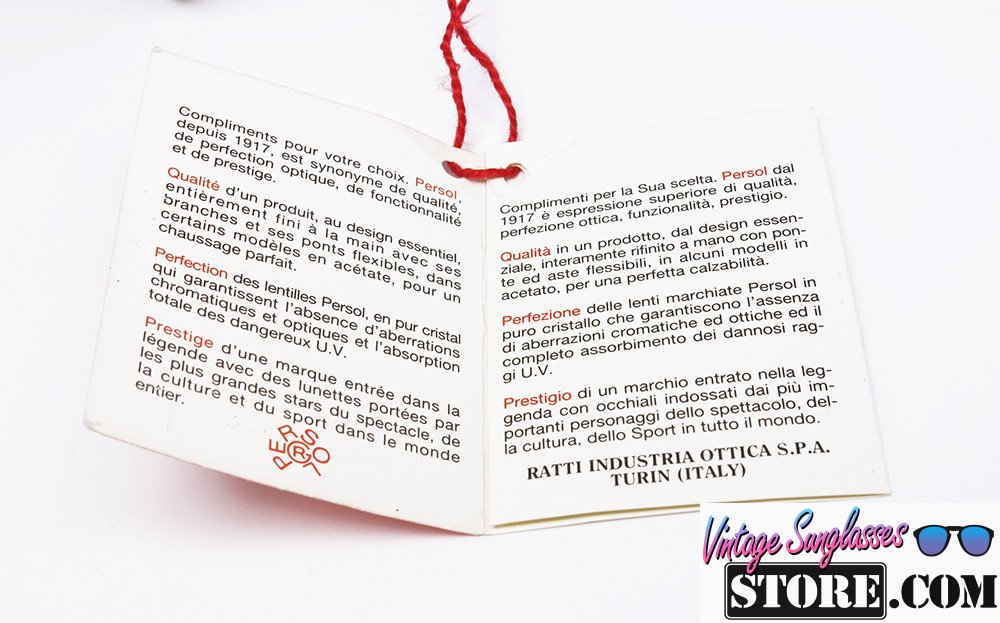 Compliments pour votre choix. Persol,
depuis 1917, est synonyme de qualité,
de perfection optique, de fonctionnalité
et de prestige.
Qualité d'un produit, au design essentiel,
entièrement fini à la main avec ses
branches et ses ponts flexibles, dans
certains modèles en acétate, pour un
chaussage parfait.
Perfection des lentilles Persol, en pur cristal
qui garantissent l'absence d'aberrations
chromatiques et optiques et l'absorption
totale des dangereux U.V.
Prestige d'une marque entrée dans la
légende avec des lunettes portées par
les plus grandes stars du spectacle, de
la culture et du sport dans le monde
entier.
PERSOL
R
Complimenti per la Sua scelta. Persol dal
1917 è espressione superiore di qualità,
perfezione ottica, funzionalità, prestigio.
Qualità in un prodotto, dal design essen-
ziale, interamente rifinito a mano con pon-
te ed aste flessibili, in alcuni modelli in
acetato, per una perfetta calzabilità.
Perfezione delle lenti marchiate Persol in
puro cristallo che garantiscono l'assenza
di aberrazioni cromatiche ed ottiche ed il
completo assorbimento dei dannosi rag-
gi U.V.
Prestigio di un marchio entrato nella leg-
genda con occhiali indossati dai più im-
portanti personaggi dello spettacolo, del-
la cultura, dello Sport in tutto il mondo.
RATTI INDUSTRIA OTTICA S.P.A.
TURIN (ITALY)
Vintage Sunglasses
STORE.COM